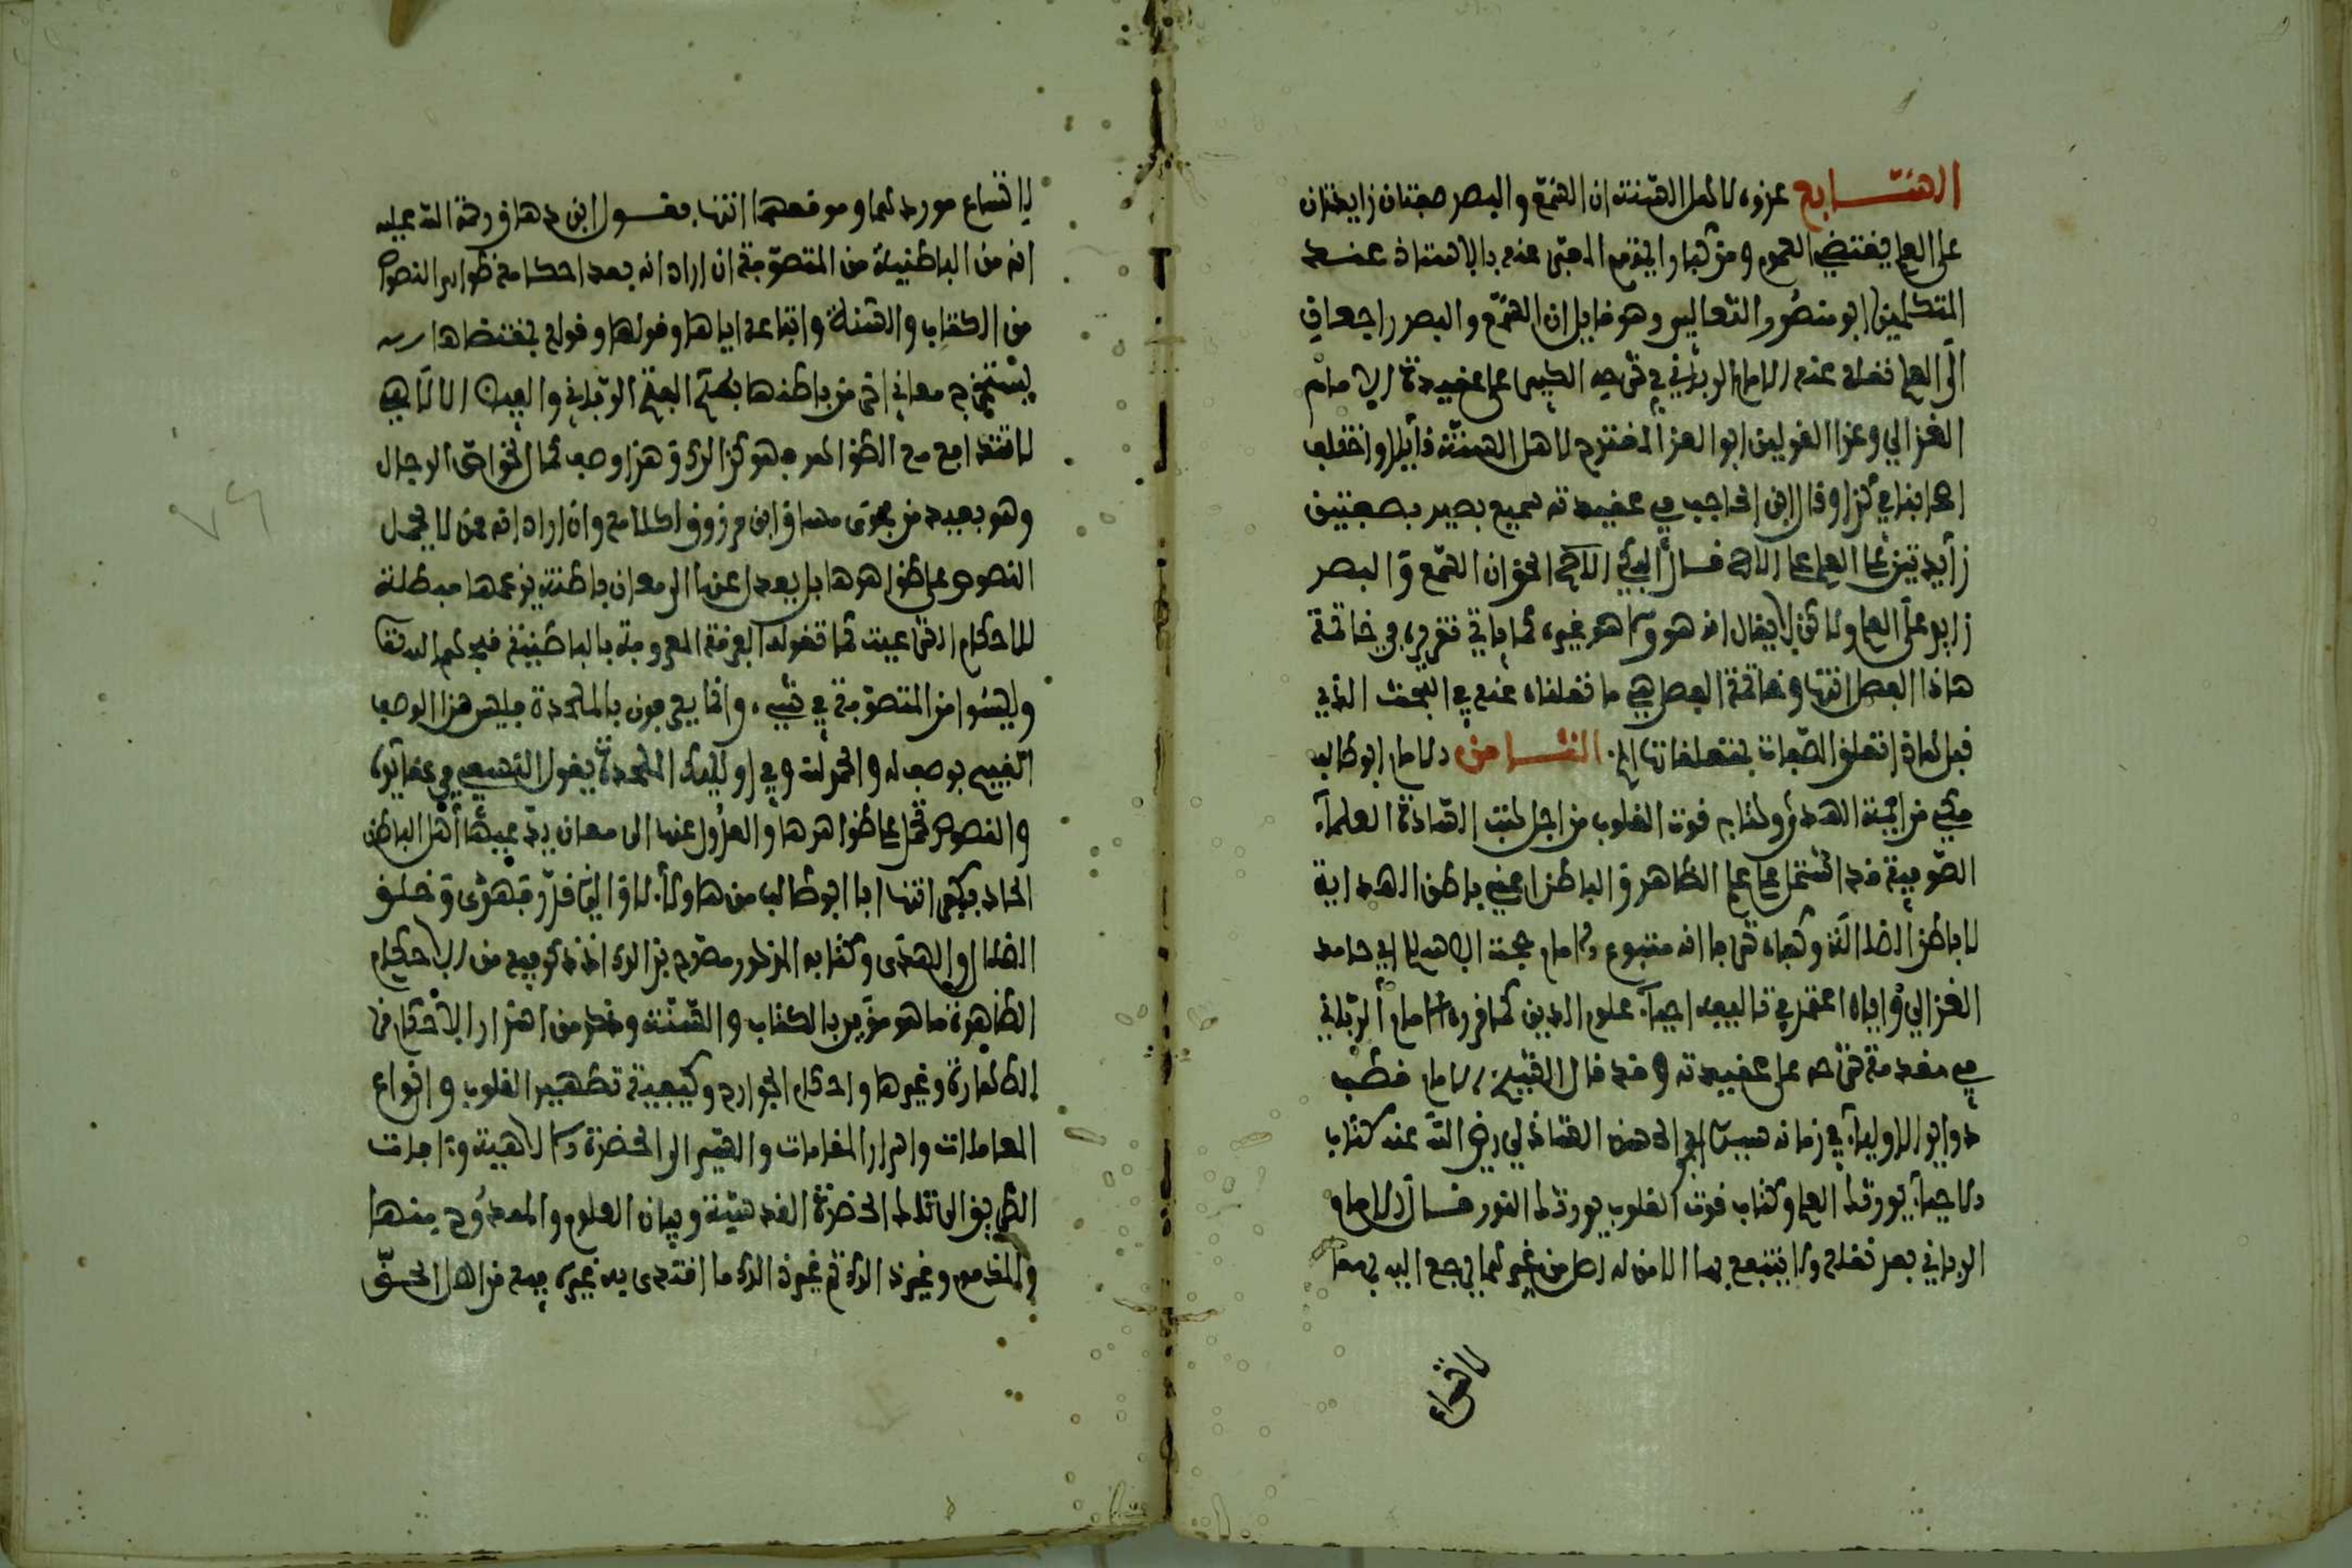 السابع عزوه لاهل السنة ان السمع والبصر صفتان زايدتان
على العلم يقتضي العموم ومن كبراءيهم المعبر عنه بالاستاذ عند
المتكلمين ابو منصور الثعالبي وهو قايل ان السمع والبصر راجعان
الى العلم نقله عنه الامام البرزلي في الكبير على عقيدة الامام
الغزالي وعزا القولين ابو العز المقترح لاهل السنة قايلا واختلف
اصحابنا في كذا وقال ابن الحاجب في عقيدته سميع بصير بصفتين
زايدتين على العلم على الاصح فسال الاصح الحق ان السمع والبصر
زايد على العلم ولاكن لا يقال انه هو ولا هو غيره كما ياتي تقريره في خاتمة
هاذا الفصل انتها وخاتمة الفصل هي ما نقلناه عنه في البحث الذي
قبل هاذا تعلق الصفات بمتعلقاتها الخ الثامن الامام ابو طالب
مكي من ايمة الهدى وكتابه قوت القلوب من اجل كتب السادة العلماء
الصوفية قد اشتمل على علم الظاهر والباطن اعني باطن الهداية
لا باطن الضلالة وكفاه شرفا انه متبوع الامام حجة الاسلام ابي حامد
الغزالي واياه اعتمد في تاليفه احياء علوم الدين كما قرره الامام
في مقدمة شرحه على عقيدته وقد قال الشيخ الامام قطب
دواير الاولياء في زمانه سيدي ابو الحسن الشاذلي رضي الله عنه كتاب
الاحياء يورثك العلم وكتاب قوت القلوب يورثك النور فسال الامام
بعد نقله ولا ينتفع بهما الا من له اصل من غيرهما يرجع اليه فيهما
لاتساع
لاتساع موردهما وموقعهما انتها فقول ابن دهاق رحمة الله عليه
انه من الباطنية من المتصوفة ان اراد انه بعد احكامه ظواهر النصوص
من الكتاب والسنة واتباعه اياها وقولها وقوله بمقتضاها
يستخرج معاني اخر من باطنها بحكم الفتح الرباني والفيض الالاهي
لا تتدافع مع الظواهر فهو كذالك وهذا وصف كمال لخواص الرجال
وهو بعيد من فحوى مساق ابن مرزوق لكلامه وان اراد انه ممن لا يحمل
النصوص على ظواهرها بل يعدل عنها الى معان باطنة يزعمها مبطلة
للاحكام الشرعية كما تقوله الفرقة المعروفة بالباطنية قبحهم الله تعا
وليسوا من المتصوفة في شيء وانما يعرفون بالملحدة فليس هذا الوصف
القبيح بوصف له والحمد لله وفي اوليك الملحدة يقول النسفي في عقايده
والنصوص تحمل على ظواهرها والعدول عنها الى معان يدعيها اهل الباطن
الحاد بكفر انتها فابو طالب من هاولاء لا والذي قدر فهدى وخلق
الضلال والهدى وكتابه المذكور مصرح بذالك اذ ذكر فيه من الاحكام
الظاهرة ما هو مويد بالكتاب والسنة وذكر من اسرار الاحكام في
الطهارة وغيرها واحكام الجوارح وكيفية تطهير القلوب وانواع
المعاملات واسرار المقامات والسير الى الحضرة الالاهية وءافات
الطريق الى تلك الحضرة القدسية وبيان العلوم والممدوح منها
والمذموم وغير ذالك ثم غير ذالك ما اقتدى به غيره فيه من اهل الحق